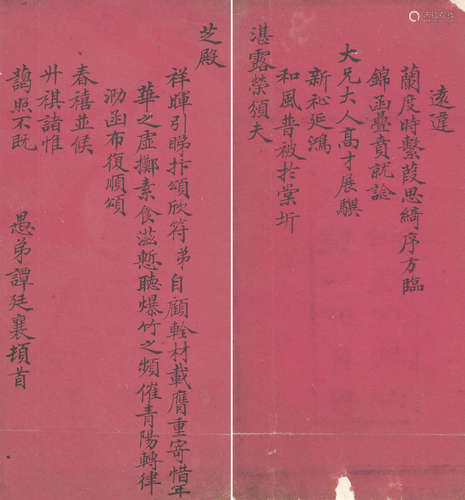 遠違
蘭度時繫葭思綺序方臨
錦函疊賁就諗
大兄大人高才展驥
新祉延鴻
和風普被於棠圻
湛露榮頒夫
芝殿
祥暉引睇抃頌欣符弟自顧輇材載膺重寄惜年
華之虛擲素食滋慙聽爆竹之頻催青陽轉律
泐函布復順頌
春禧並候
升祺諸惟
藹照不既
愚弟譚廷襄頓首